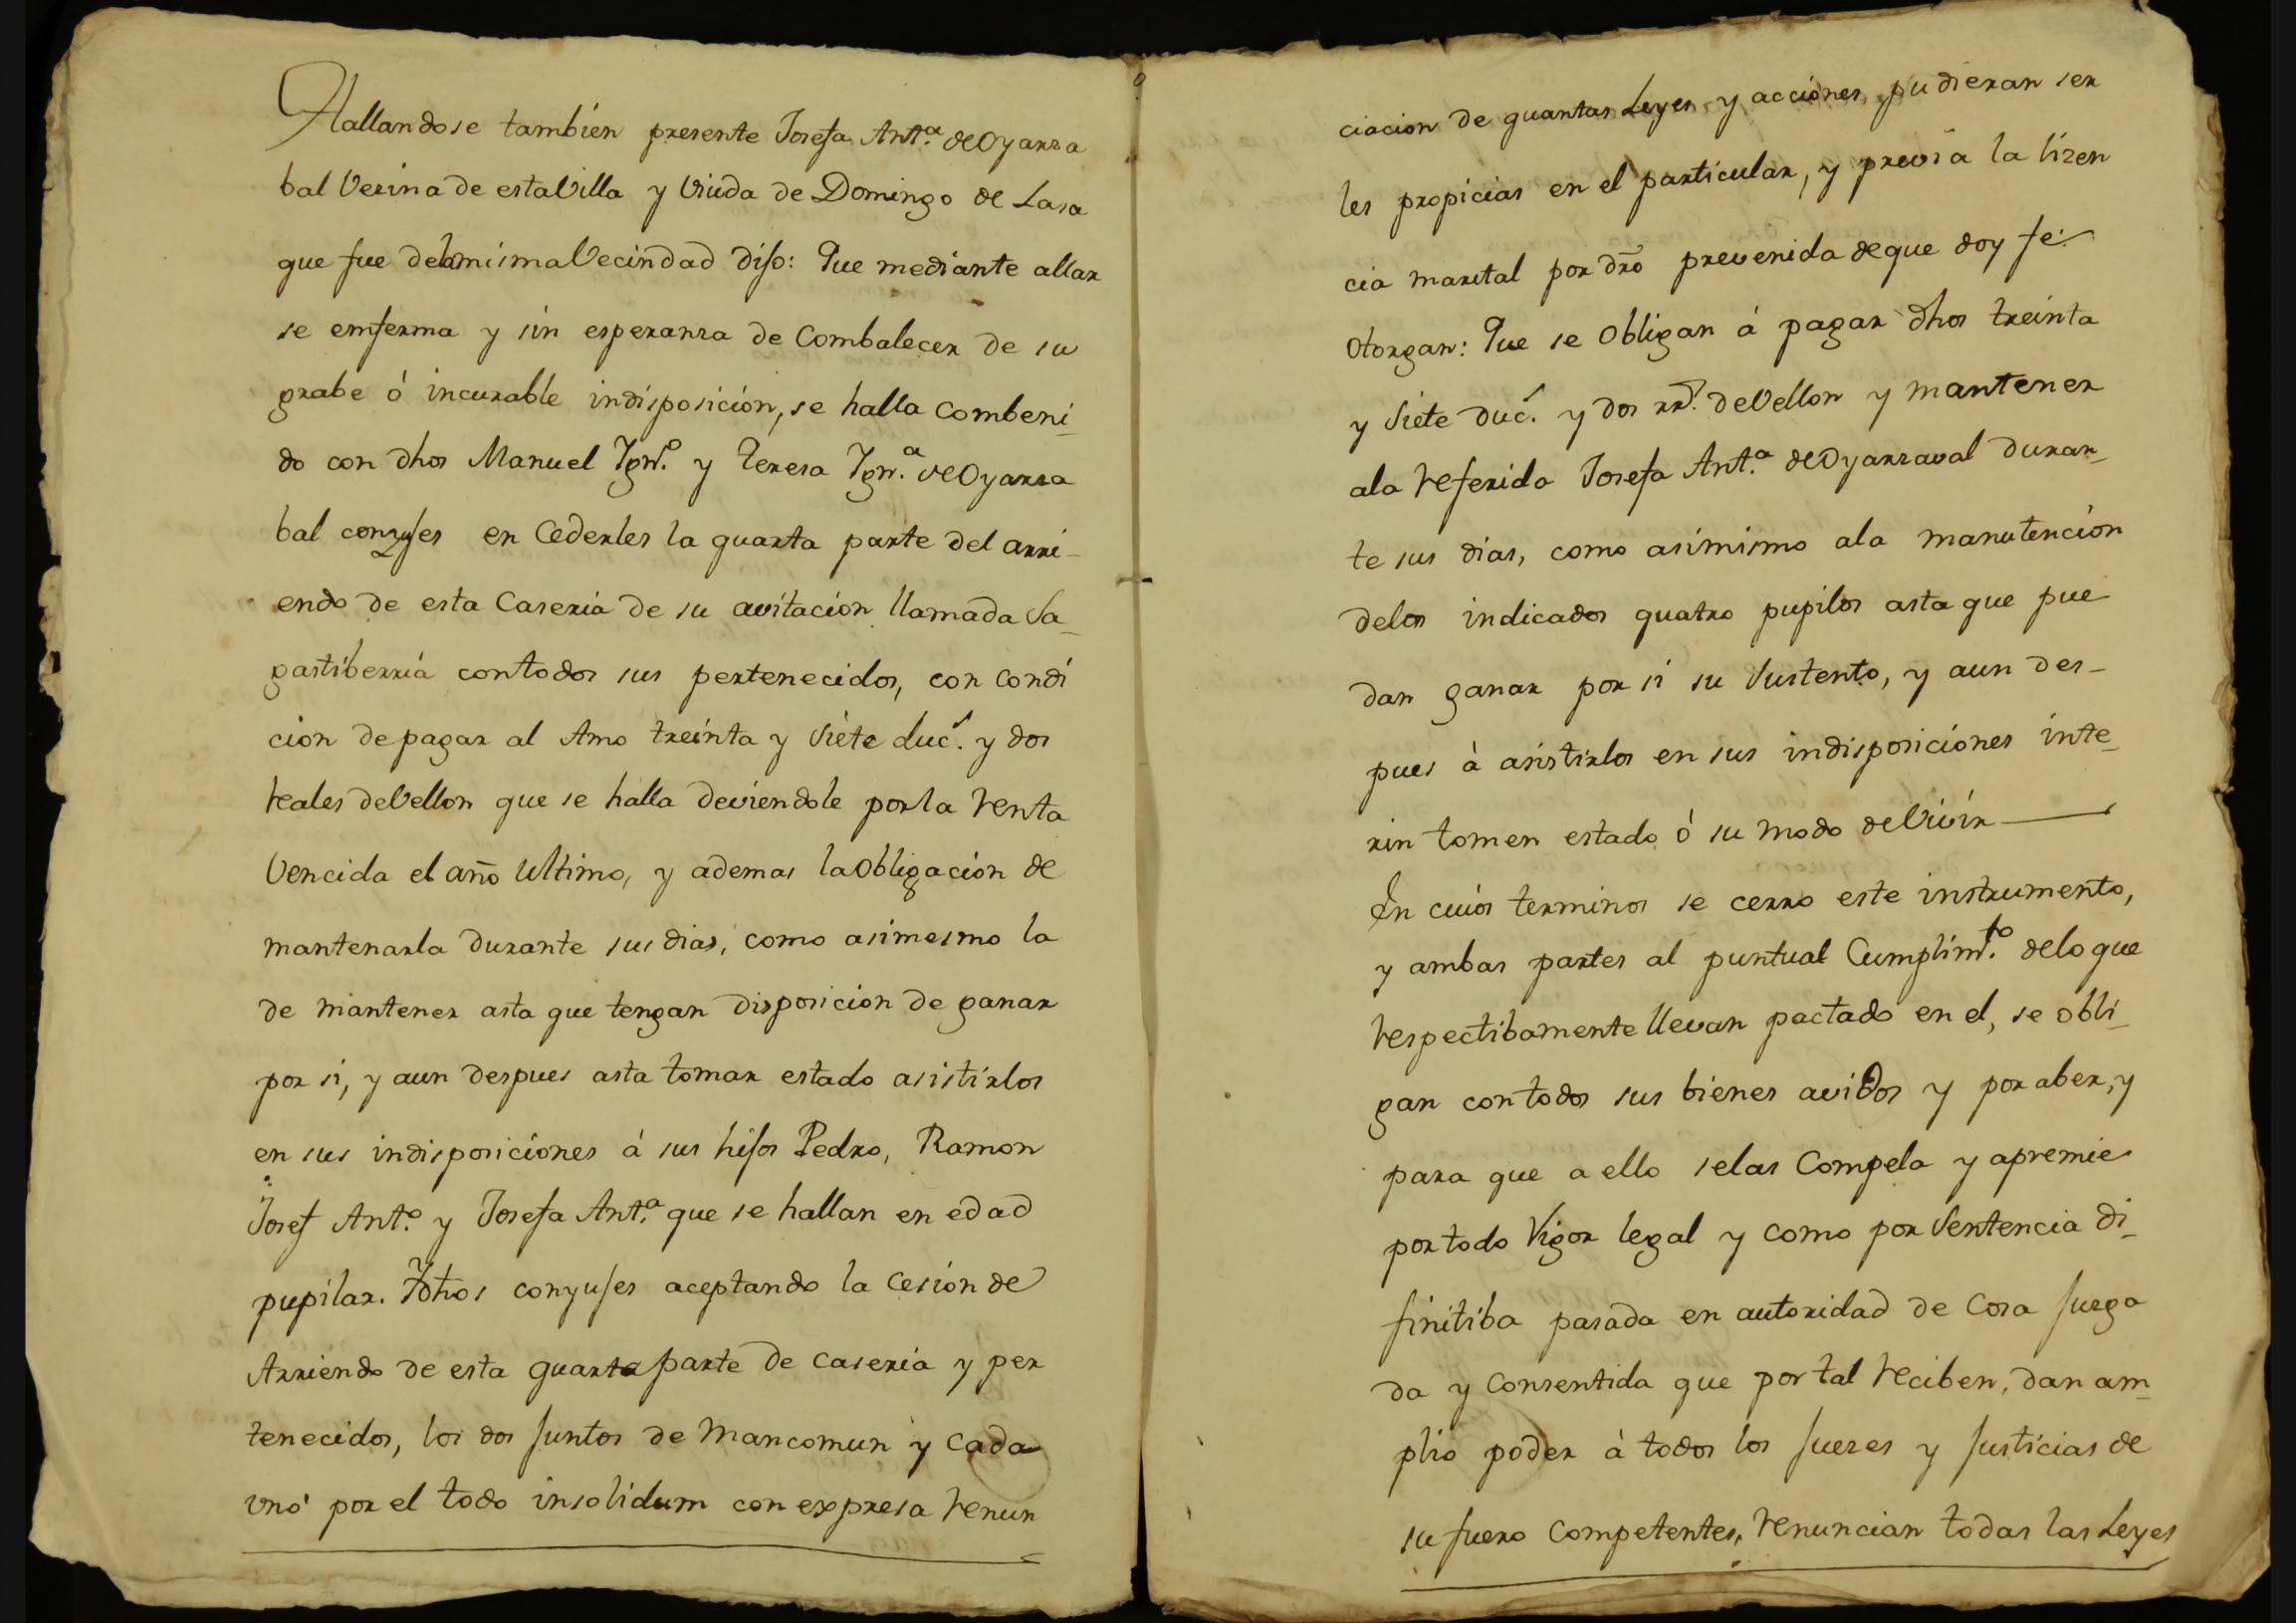 Hallandose tambien presente Josefa Ant.ª de Oyarza
bal Vezina de esta Villa y Viuda de Domingo de Lasa
que fue de la misma Vecindad dijo: Que mediante allar
se emferma y sin esperanza de Combalecer de su
grabe ó incurable indisposición, se halla combeni_
do con dhos Manuel Ign.º y Teresa Ign.ª de Oyarza
bal conyuges en Cederles la quarta parte del arri_
endo de esta Caseria de su avitación llamada Sa_
gastiberria con todos sus pertenecidos, con condi
cion de pagar al Amo treinta y Siete duc.s y dos
reales de Vellon que se halla deviendole por la renta
Vencida el año Ultimo, y ademas la obligación de
mantenarla durante sus dias, como asimesmo la
de mantener asta que tengan disposicion de ganar
por si, y aun despues asta tomar estado asistirlos
en sus indisposiciónes á sus hijos Pedro, Ramon
Josef Ant.º y Josefa Ant.ª que se hallan en edad
pupilar. Y dhos conyujes aceptando la Cesión de
Arriendo de esta quarta parte de caseria y per
tenecidos, los dos juntos de Mancomun y cada
uno por el todo insolidum con expresa renun
ciacion de quantas Leyes y acciónes pudieran ser
les propicias en el particular, y previa la lizen
cia marital por dro prevenida de que doy fé.
Otorgan: Que se Obligan á pagar dhos treinta
y Siete duc.s y dos rr.s de Vellon y mantener
a la referida Josefa Ant.ª de Oyarzaval duran_
te sus dias, como asimismo a la manutención
de los indicados quatro pupilos asta que pue
dan ganar por si su Sustento, y aun des_
pues á asistirlos en sus indisposiciónes inte_
rin tomen estado ó su modo de Vivir
En cuios terminos se cerro este instrumento,
y ambas partes al puntual Cumplim.to de lo que
respectibamente llevan pactado en el, se obli_
gan con todos sus bienes avidos y por aber, y
para que a ello se las Compela y apremie
por todo Vigor legal y como por Sentencia di_
finitiba pasada en autoridad de Cosa juzga
da y Consentida que por tal reciben, dan am_
plio poder á todos los juezes y justicias de
su fuero Competentes, renuncian todas las Leyes